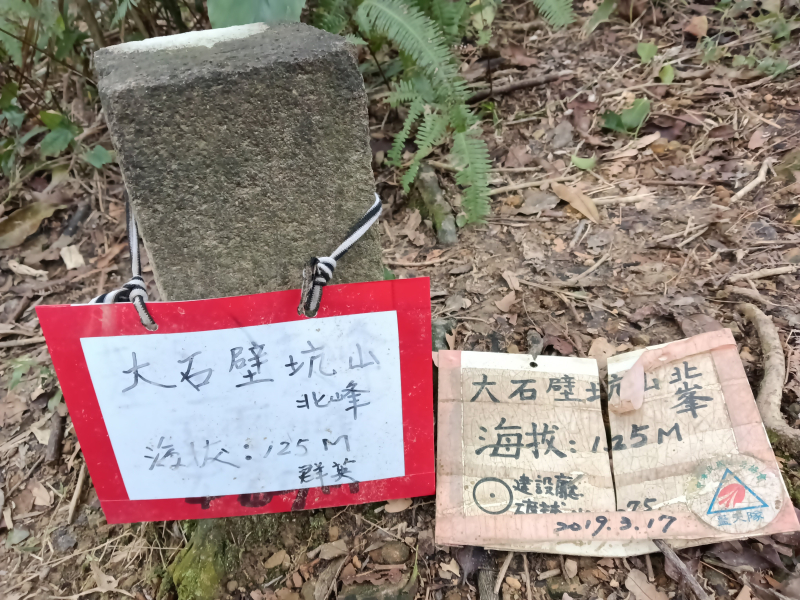 大石壁坑山
北峰
海拔：125M
群英
大石壁坑山北
峯
海拔：125M
建設廳
75
2019.3.17
藍天隊